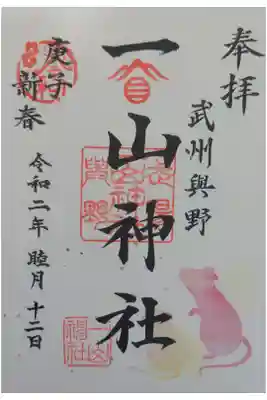 奉拝
武州與野
一山神社
庚子
新春
令和二年 睦月 十二日